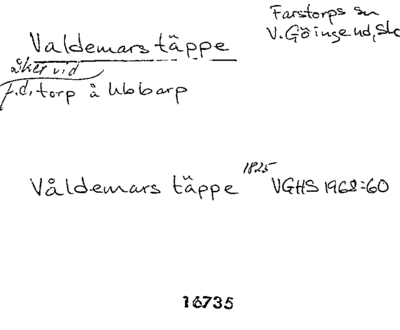 Farstorps sn
V. Göinge hd, Sk
Valdemars täppe
åker vid
f.d. torp å Ubbarp
Våldemars täppe 1825 VGHS 1968:60
16735